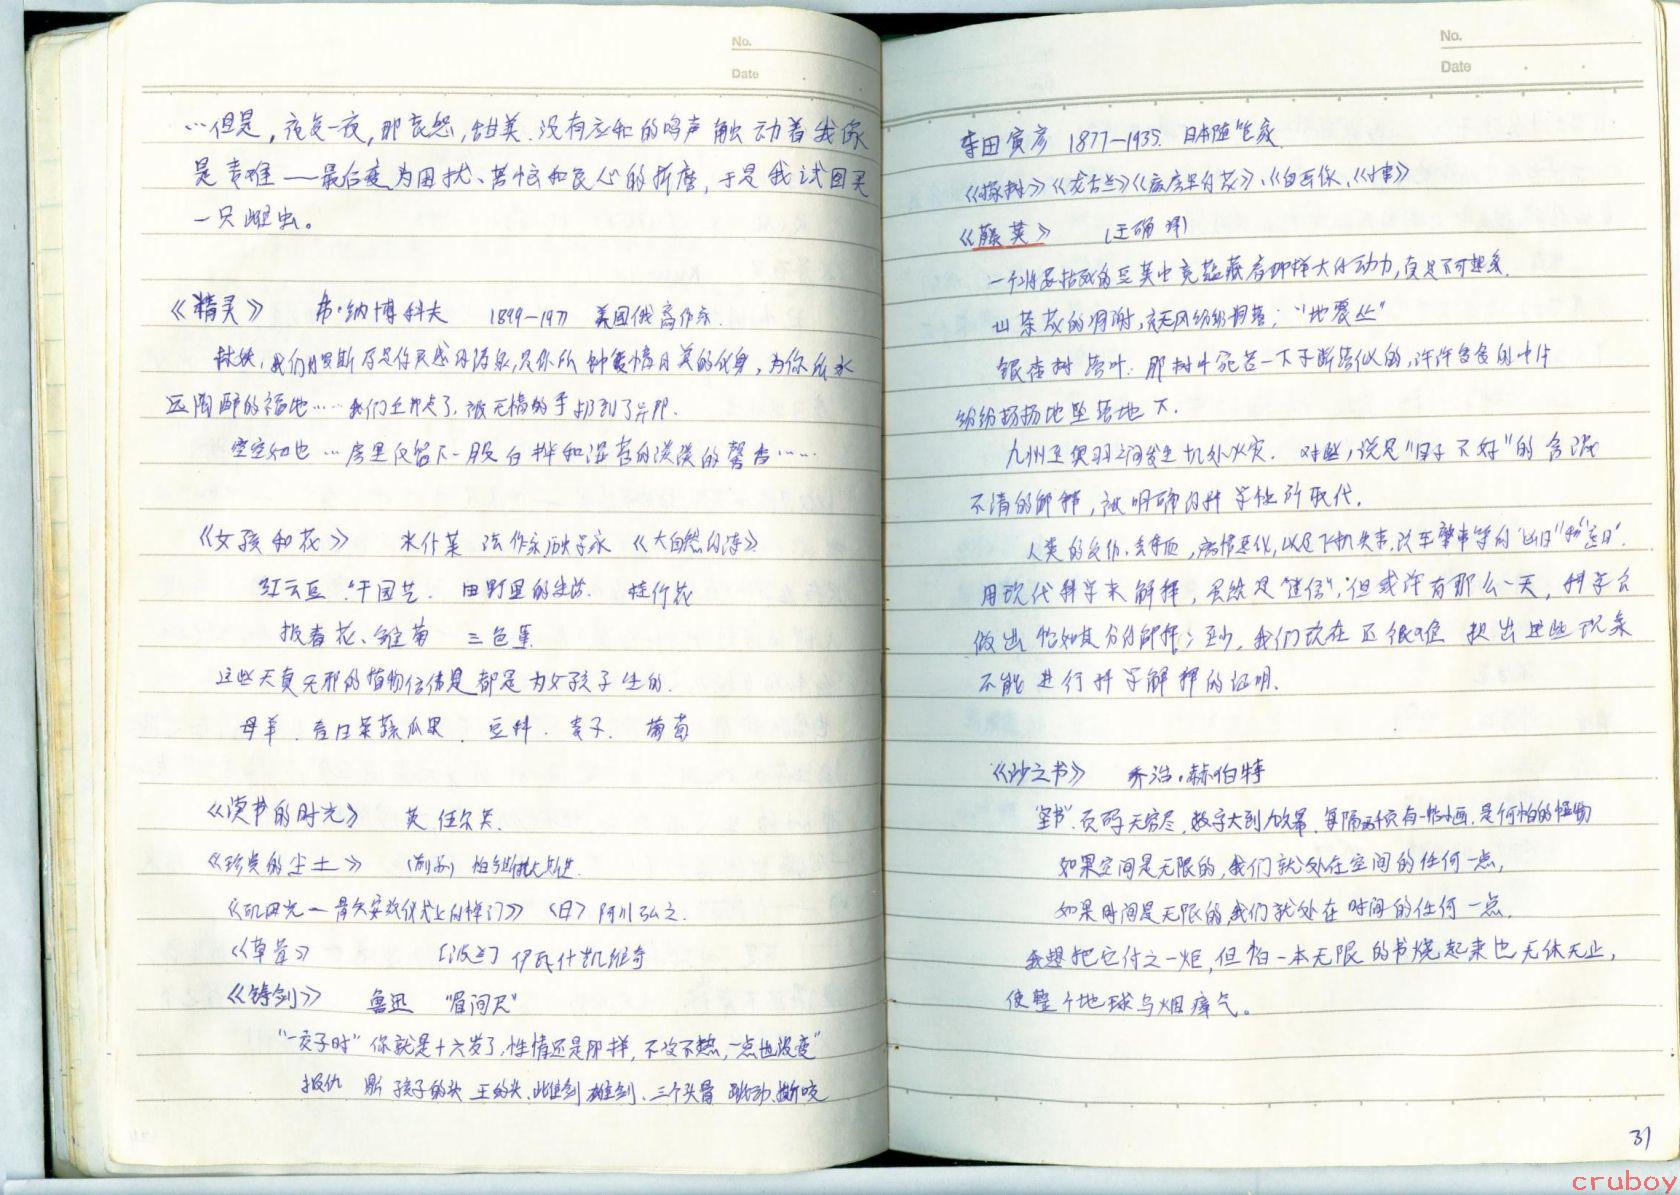 No.
Date
…但是，夜复一夜，那哀怨，甜美.没有应和的鸣声触动着我像
是责难——最后变为困扰、苦恼和良心的折磨，于是我试图买
一只雌虫。
《精灵》 弗·纳博科夫 1899-1977 美国俄裔作家.
林妖，我们俄罗斯乃是你灵感的源泉，是你所钟爱情月美的化身，为你所永
远陶醉的福地……我们丘那点了，被无情的手扔到了异邦.
空空如也…房里仅留下一股白桦和湿苔的淡淡的馨香……
《女孩和花》 米什莱 法 作家历史学家 《大自然的诗》
红云豆 午园艺. 田野里的生活. 桂竹花
报春花、雏菊 三色堇.
这些天真无邪的植物仿佛是都是为女孩子生的.
母羊. 青白菜蔬瓜果. 豆料. 麦子. 葡萄
《读书的时光》 英 任尔芙.
《珍贵的尘土》 (前苏) 帕乌斯托夫斯基.
仪式上的 》 (日) 阿川弘之.
《草莓》 [波兰] 伊瓦什凯维奇
《铸剑》 鲁迅 "眉间尺"
"一交子时"你就是十六岁了，性情还是那样，不冷不热，一点也没变"
报仇 鼎 孩子的头 王的头.雌剑 雄剑、三个头骨 跳动.撕咬
No.
Date
寺田寅彦 1877-1935. 日本随笔家.
《橡树》《龙舌兰》《病房里的花》、《自画像、《小事》
《藤荚》 (王确 译)
一个将要枯死的豆荚中竟蕴藏着那样大的动力，真是不可想象.
山茶花的凋谢，
银杏树落叶. 那树叶宛若一下子断落似的，许许多多的叶片
纷纷扬扬地坠落地下.
九州至奥羽之间发生几处火灾. 对此，说是"日子不好"的含混
不清的解释，被明确的科学性所取代.
人类的受伤.
用现代科学来解释，虽然是"迷信"，但或许有那么一天，科学会
做出恰如其分的解释；至少，我们现在还很难找出这些现象
不能进行科学解释的证明.
《沙之书》 乔治·赫伯特
"圣书".页码无穷尽，数字大到八次幂，每隔两千页有一帖小画，是何怕的怪物
如果空间是无限的，我们就处在空间的任何一点，
如果时间是无限的，我们就处在时间的任何一点.
我想把它付之一炬，但怕一本无限的书烧起来也无休无止，
使整个地球乌烟瘴气。
31
cruboy